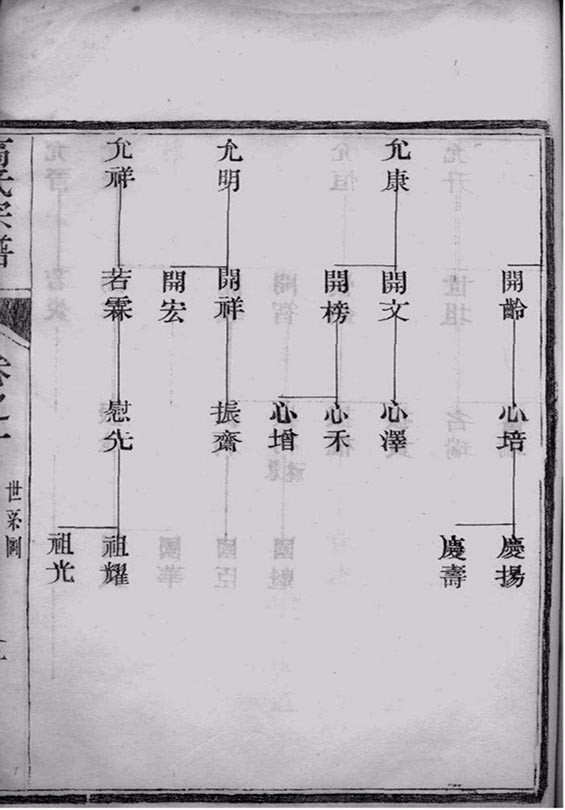 開齡
心培
慶揚
慶壽
允康
開文
心澤
開榜
心禾
心增
允明
開祥
振齋
開宏
允祥
若霖
慰先
祖耀
祖光
氏宗譜
卷之一
世系圖